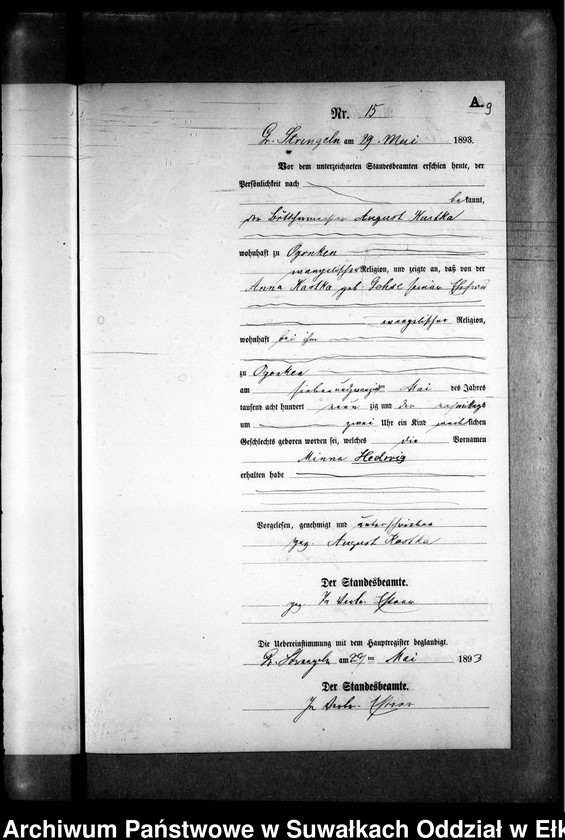 A. 9
Nr. 15
Gr. Strengeln am 29. Mai 1893.
Vor dem unterzeichneten Standesbeamten erschien heute, der
Persönlichkeit nach
bekannt,
der Böttchermeister August Kastka
wohnhaft zu Ogonken
evangelischer Religion, und zeigte an, daß von der
Anna Kastka geb. seiner Ehefrau
evangelischer Religion,
wohnhaft bei ihm
zu Ogonken
am siebenundzwanzig Mai des Jahres
tausend acht hundert neun zig und drei
um zwei Uhr ein Kind weiblichen
Geschlechts geboren worden sei, welches die Vornamen
Minna Hedwig
erhalten habe
Vorgelesen, genehmigt und unterschrieben
gez. August Kastka
Der Standesbeamte.
gez. In Vertr.
Die Uebereinstimmung mit dem Hauptregister beglaubigt.
Gr. Strengeln am 29 ten Mai 1893
Der Standesbeamte.
In Vertr.
Archiwum Państwowe w Suwałkach Oddział w Ełk